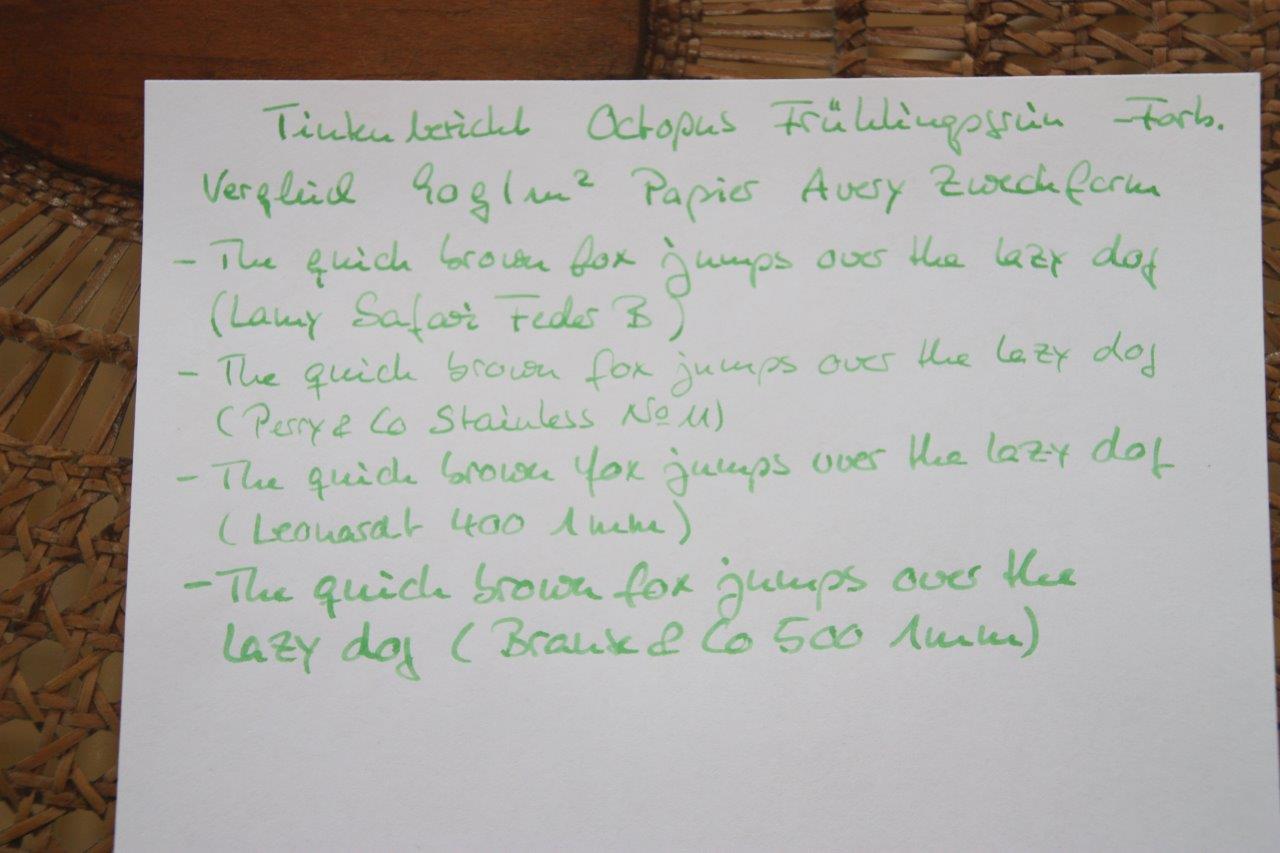 Tintenbericht Octopus Frühlingsgrün Farb.
Vergleich 90g/m² Papier Avery Zweckform
- The quick brown fox jumps over the lazy dog
(Lamy Safari Feder B)
- The quick brown fox jumps over the lazy dog
(Perry & Co Stainless No 11)
- The quick brown fox jumps over the lazy dog
(Leonardt 400 1mm)
- The quick brown fox jumps over the
lazy dog (Brause & Co 500 1mm)